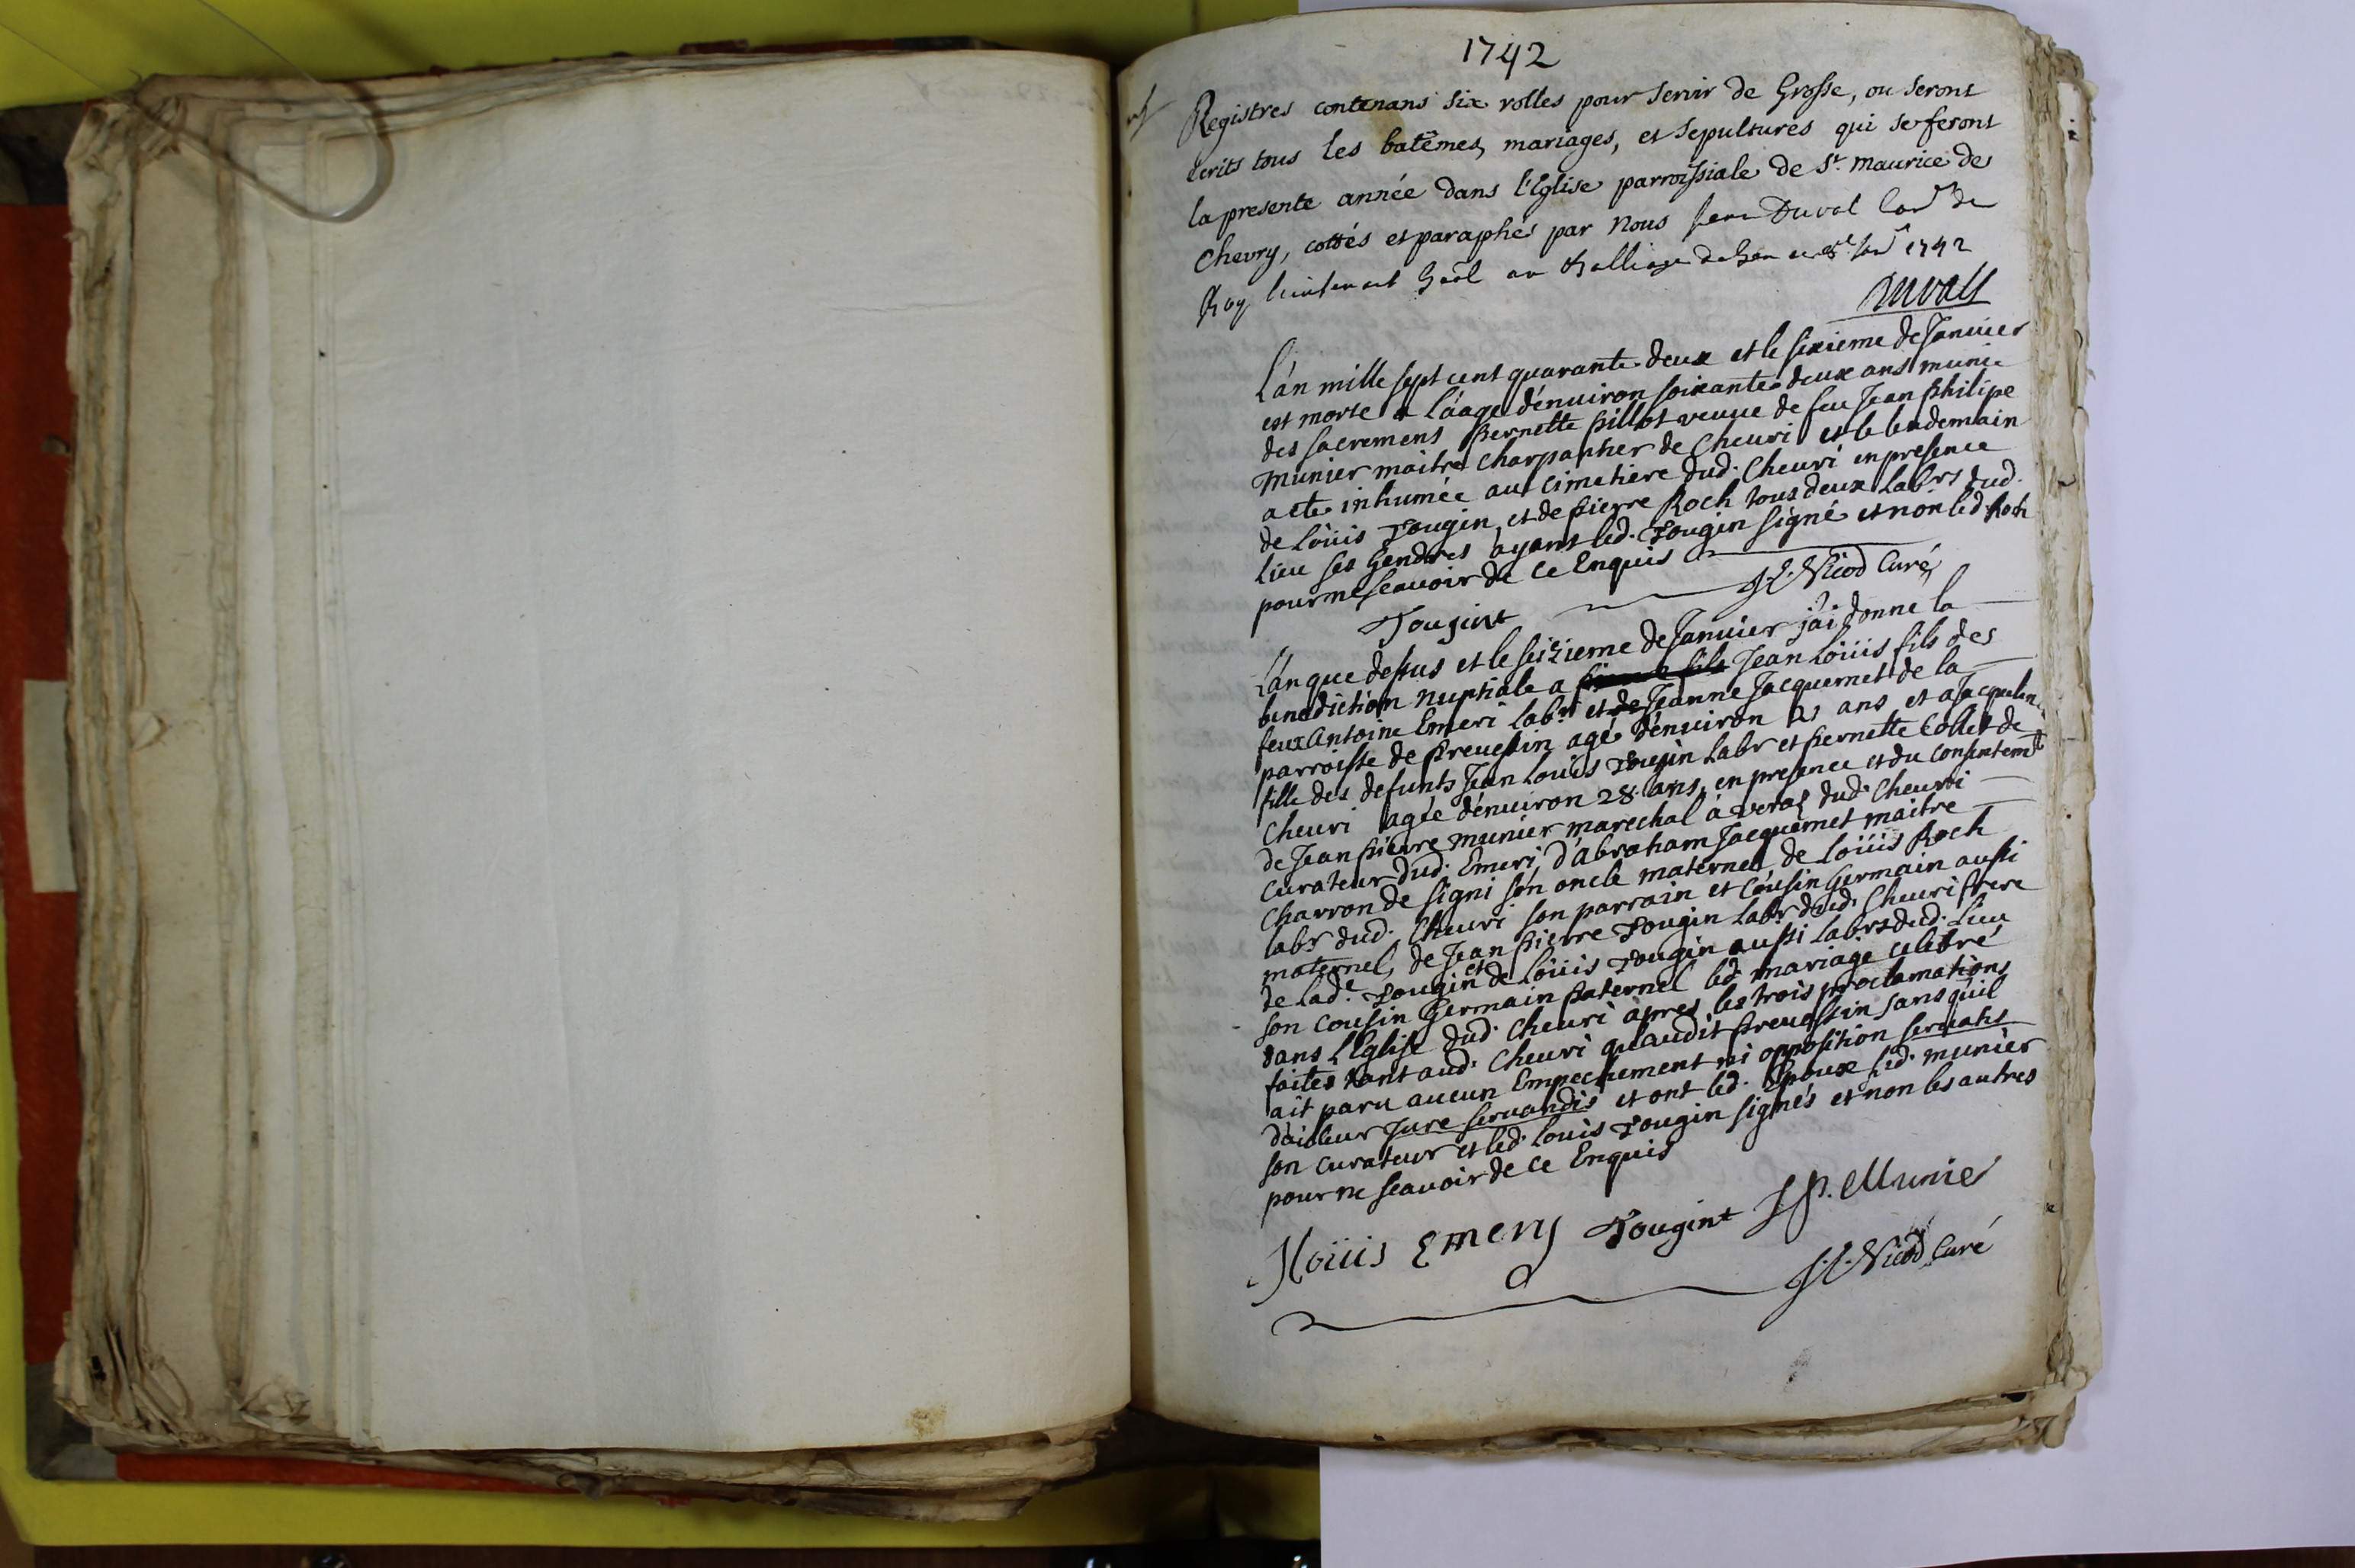 1742
Registres contenans six rolles pour servir de Grosse, ou seront
ecrits tous les batêmes, mariages, et sepultures qui se feront
la presente année dans l'Eglise parroissiale de St. maurice de
Chevry, cottés et paraphés par Nous Jean Duval Con.r du
Roy lieutenant Gnâl au Balliage de Gex ce Janr 1742
Duvall
L'an mille sept cent quarante deux et le sixieme de Januier
est morte a l'áage d'enuiron soixante deux ans munie
des sacremens pernette pillot veuue de feu Jean philipe
munier maitre Charpantier de Cheuri et le lendemain
a ete inhumée au Cimetiere dud. Cheuri en presence
de Loüis Tougin, et de pierre Roch tous deux Labrs dud.
Lieu ses Gendres ayant led. Tougin signé et non led. Roch
pour ne scauoir de ce Enquis
Tougint J. L. Nicod Curé
L'an que dessus et le seizieme de Januier j'ai donne la
benediction nuptiale a Jean Loüis fils des
feux Antoine Emeri labr. et de Jeanne Jacquemet de la
parroisse de preuessin agé d'enuiron 21 ans et a Jacqueline
fille des defunts Jean Louis Tougin Labr et pernette Collet de
Cheuri agée d'enuiron 28 ans, en presence et du consentemt
de Jean pierre munier marechal a veras dud. Cheuri
Curateur dud. Emeri, d'Abraham Jacquemet maitre
Charron de signi son oncle maternel de Loüis Roch
labr dud. Cheuri son parrain et Cousin Germain aussi
maternel, de Jean pierre Tougin labr. dud. Cheuri frere
de lade. Tougin et de Loüis Tougin aussi Labrs dud. Lieu
son Cousin Germain paternel led. mariage celebré
dans L'Eglise dud. Cheuri apres les trois proclamations
faites tant aud. Cheuri qu'audit preuessin sans qu'il
ait paru aucun Empechement ni opposition seruatis
d'ailleur Jure seruandis et ont led. Epoux led. munier
son curateur et led. Louis Tougin signés et non les autres
pour ne scauoir de ce Enquis
J Loüis Emery Tougint J P. Munier
J. L. Nicod Curé